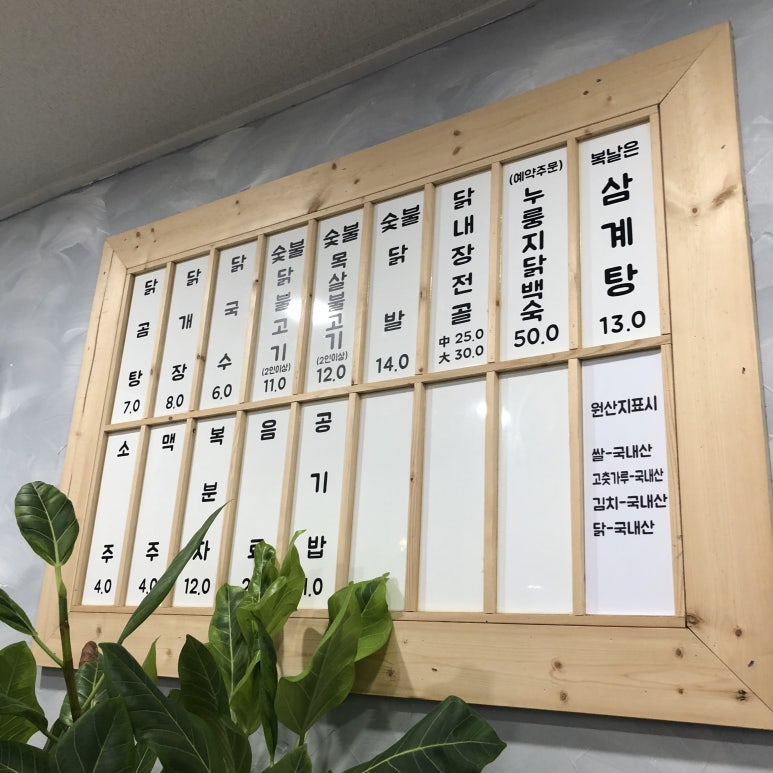 닭곰탕 7.0
닭개장 8.0
닭국수 6.0
숯불닭불고기 (2인이상) 11.0
숯불목살불고기 (2인이상) 12.0
숯불닭발 14.0
닭내장전골
中 25.0
大 30.0
(예약주문)
누룽지닭백숙
50.0
복날은
삼계탕
13.0
소주 4.0
맥주 4.0
복분자 12.0
음료
공기밥
원산지표시
쌀-국내산
고춧가루-국내산
김치-국내산
닭-국내산